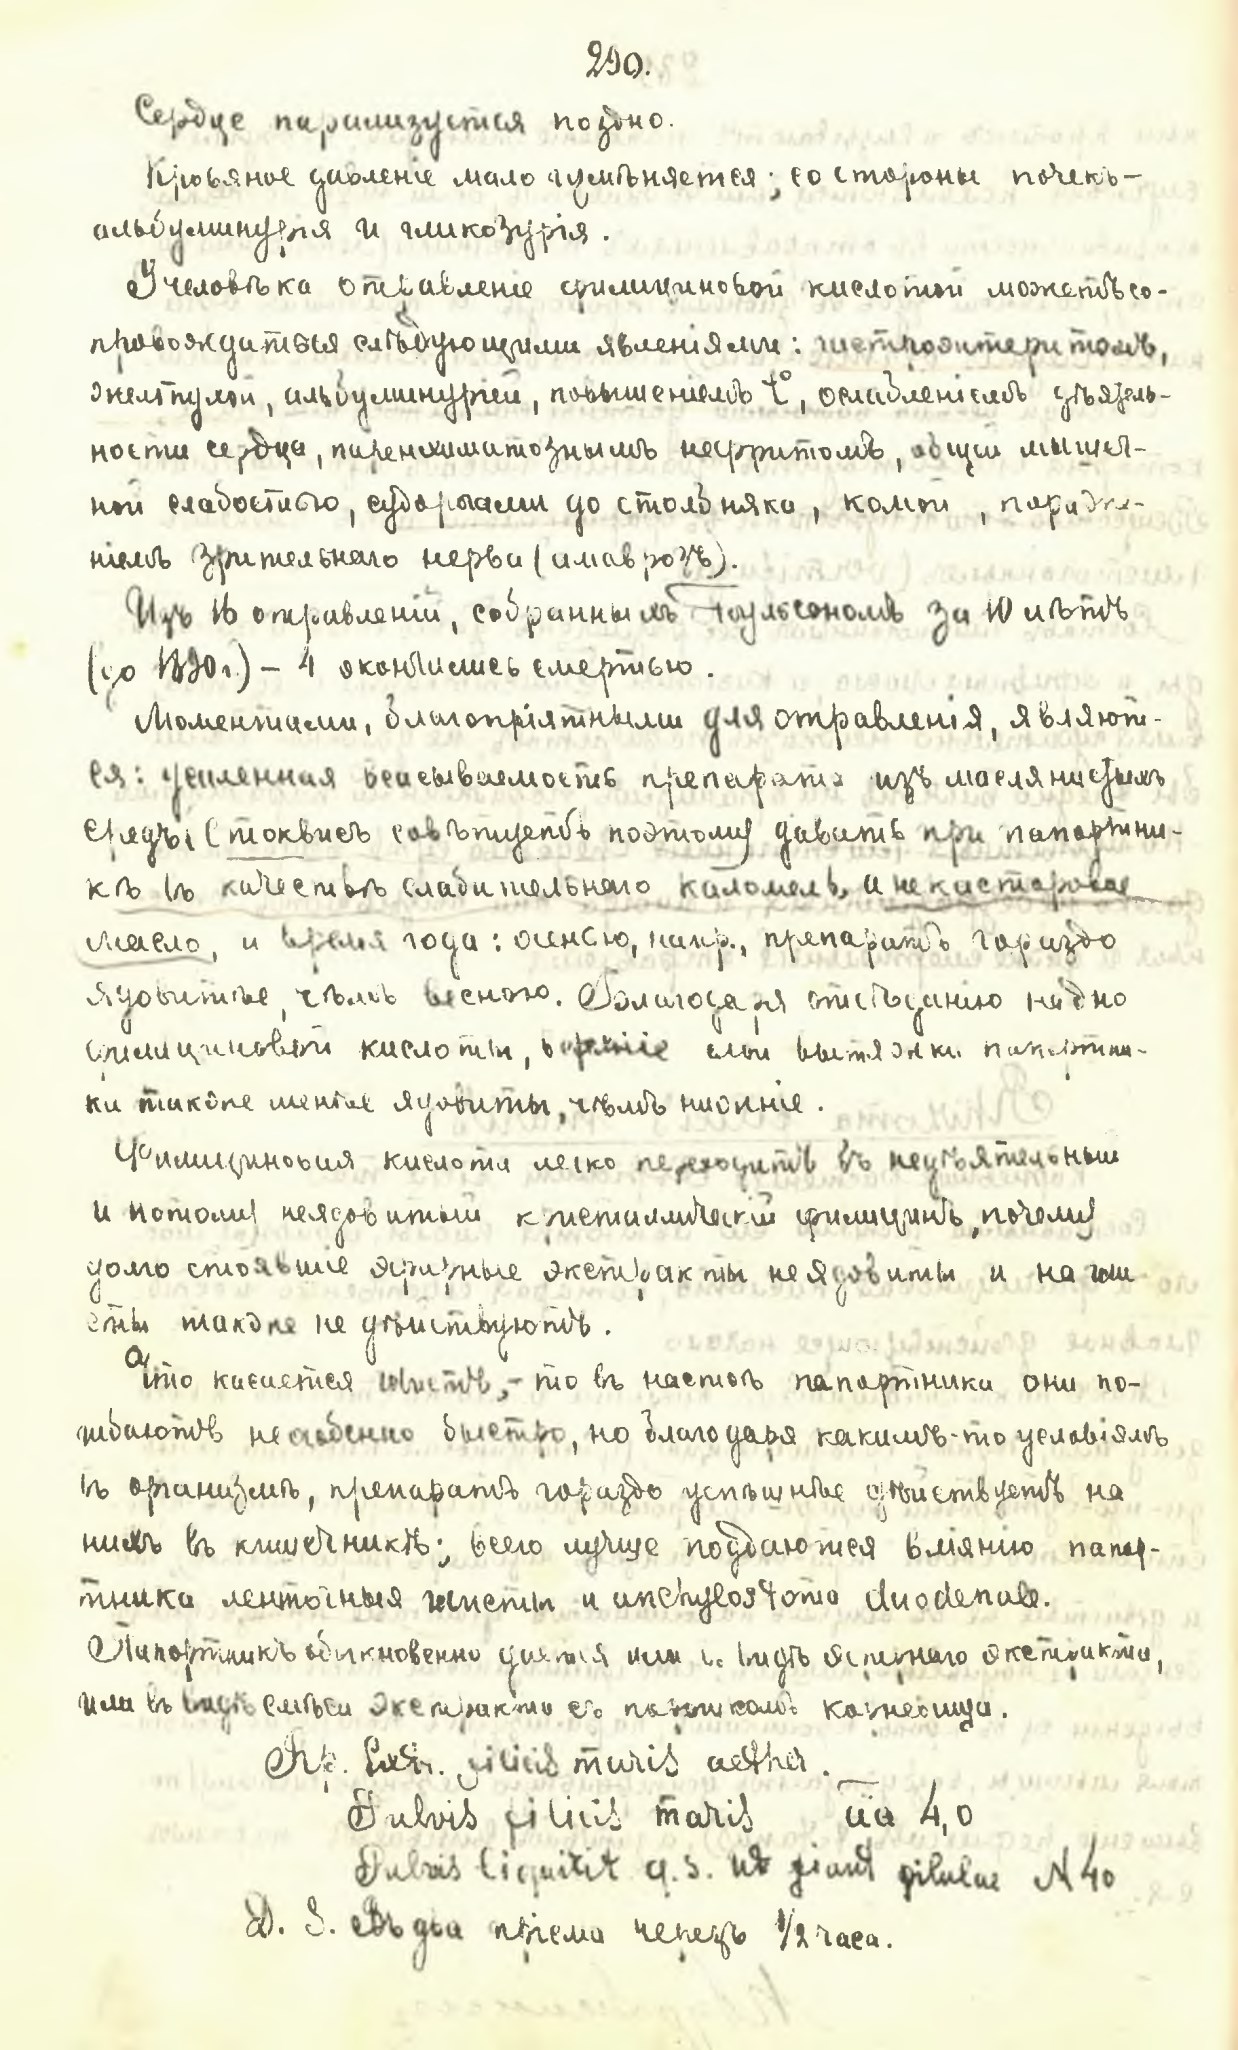 290.
Сердце парализуется поздно.
Кровяное давленіе мало измѣняется; со стороны почекъ-
альбуминурія и гликозурія.
У человѣка отравленіе филициновой кислотой можетъ со-
провождаться слѣдующими явленіями: гастроэнтеритомъ,
желтухой, альбуминуріей, повышеніемъ t°, ослабленіемъ дѣятель-
ности сердца, паренхиматознымъ нефритомъ, общей мышеч-
ной слабостью, судорогами до столбняка, комой, параже-
ніемъ зрительнаго нерва (амаврозъ).
Изъ 16 отравленій, собранныхъ Паульсономъ за 10 лѣтъ
(до 1890 г.) – 4 окончились смертью.
Моментами, благопріятными для отравленія, являют-
ся: усиленная всасываемость препарата изъ маслянистыхъ
средъ (Стоквисъ совѣтуетъ поэтому давать при папортни-
кѣ въ качествѣ слабительнаго каломель, а не касторовое
масло, и время года: осенью, напр., препаратъ гораздо
ядовитѣе, чѣмъ весною. Благодаря отсѣданію на дно
филициновой кислоты, верхніе слои вытяжки папортни-
ка также менѣе ядовиты, чѣмъ нижніе.
Филициновая кислота легко переходитъ въ недѣятельный
и потому неядовитый кристаллическій филицинъ, почему
долго стоявшіе эфирные экстракты неядовиты и на гли
сты также не дѣйствуютъ.
Что касается глистъ, – то въ настоѣ папортника они по-
гибаютъ не особенно быстро, но благодаря какимъ-то условіямъ
въ организмѣ, препаратъ гораздо успѣшнѣе дѣйствуетъ на
нихъ въ кишечникѣ; всего лучше поддаются вліянію папор-
тника ленточныя глисты и anchylostoma duodenale.
Папортникъ обыкновенно дается или въ видѣ эфирнаго экстракта,
или въ видѣ смѣси экстракта съ порошкомъ корневища.
Rp. Extr. filicis maris aether.
Pulvis filicis maris āā 4,0
Pulvis liquirit q.s. ut fiant pilulae N 40
D. S. Въ два пріема черезъ 1/2 часа.